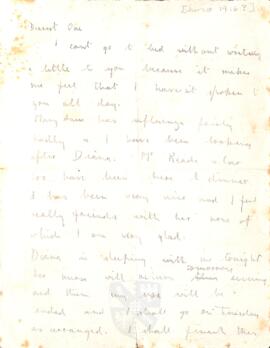 [Enero 1916?]
Dearest Pai
I can't go to bed without writing
a little to you because it makes
me feel that I haven't spoken to
you all day.
Mary Dow has influenza fairly
badly & I have been looking
after Diana. Mr Reade & Law
have been here to dinner
& has been very nice and I feel
really friends with her now of
which I am very glad.
Diana is sleeping with me tonight
her nurse will arrive tomorrow evening
and then my use will be
ended and I shall go on Tuesday
as arranged. I shall finish this